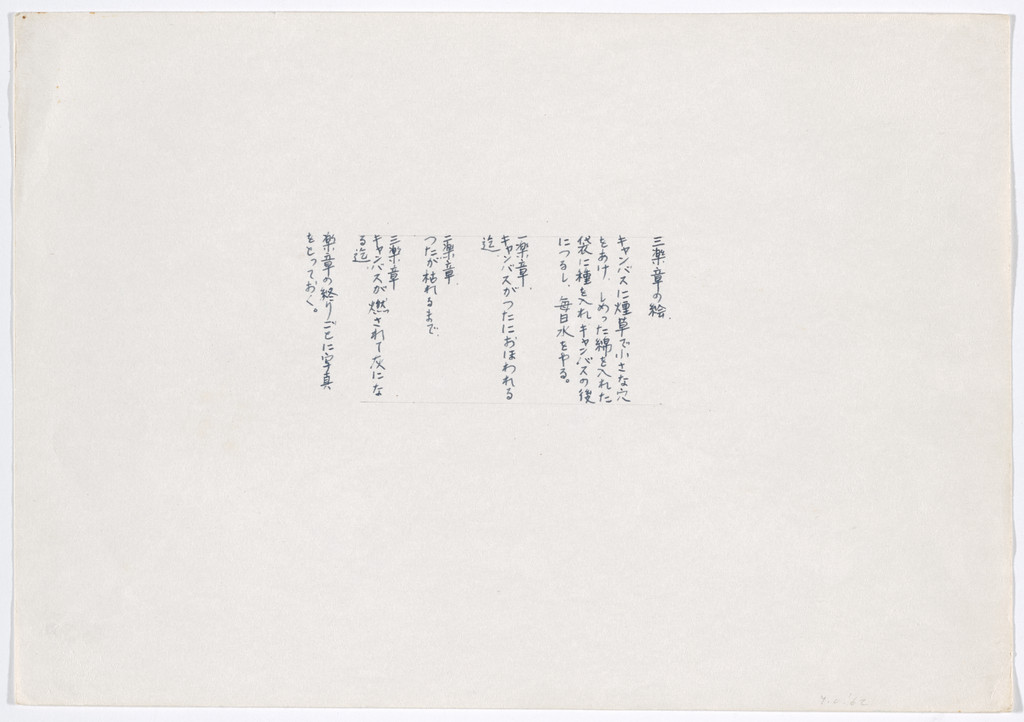 三楽章の絵
キャンバスに煙草で小さな穴
をあけ、しめった綿を入れた
袋に種を入れキャンバスの後
につるし、毎日水をやる。
一楽章、
キャンバスがつたにおほわれる
迄
二楽章
つたが枯れるまで、
三楽章
キャンバスが燃されて灰にな
る迄
楽章の終りごとに写真
をとっておく。